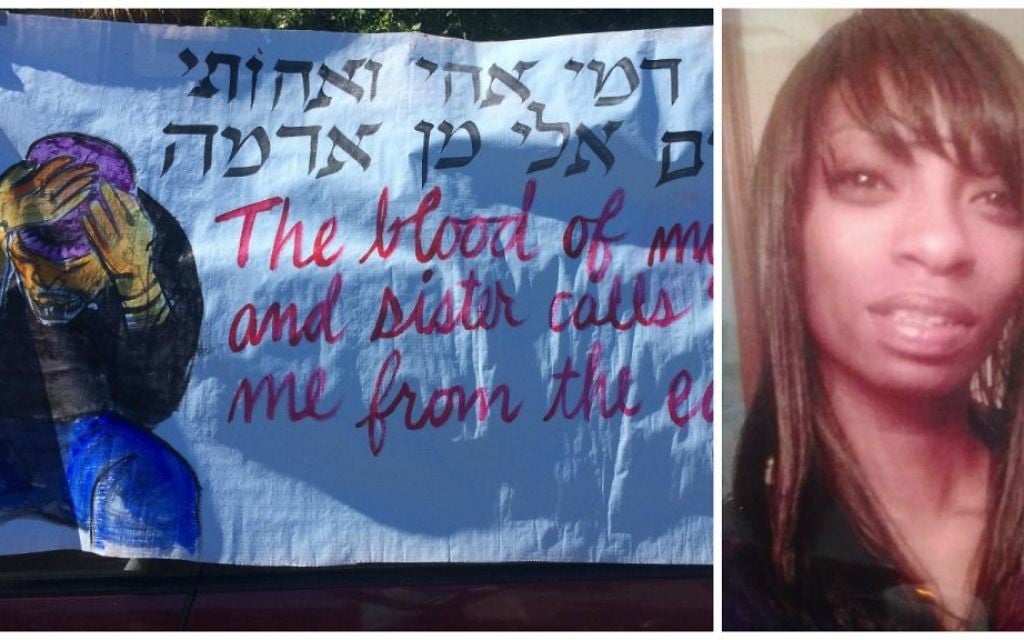 דמי אחי ואחותי
אלי מן אדמה
The blood of my
and sister calls
me from the